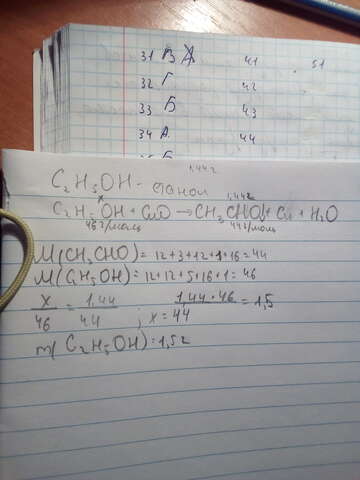 31 В А 41 51
32 Г 42
33 Б 43
34 А. 44
1,442
C₂H₅OH - этанол
x 1,442
C₂H₅OH + CuO → CH₃CHO + Cu + H₂O
46г/моль 44г/моль
M(CH₃CHO) = 12+3+12+1+16=44
M(C₂H₅OH) = 12+12+5+16+1=46
x/46 = 1,44/44 ; x = 1,44·46/44 = 1,5
m(C₂H₅OH)=1,52